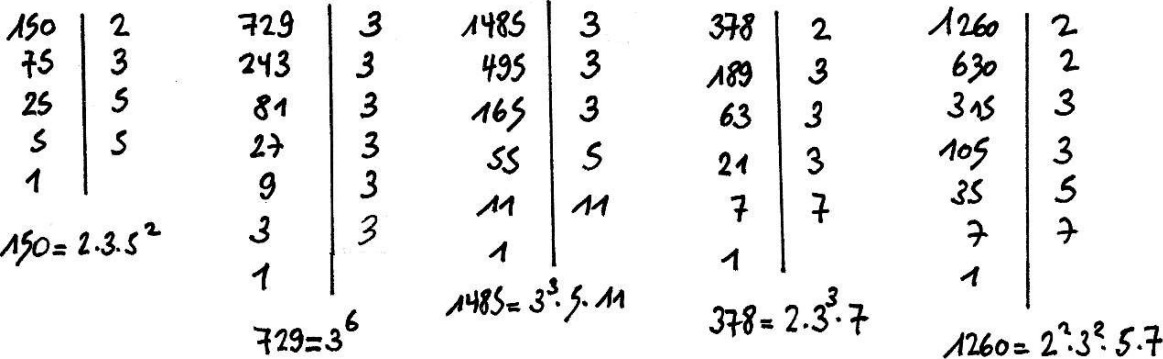 150 | 2
75 | 3
25 | 5
5 | 5
1 |
150 = 2·3·5²
729 | 3
243 | 3
81 | 3
27 | 3
9 | 3
3 | 3
1 |
729 = 3⁶
1485 | 3
495 | 3
165 | 3
55 | 5
11 | 11
1 |
1485 = 3³·5·11
378 | 2
189 | 3
63 | 3
21 | 3
7 | 7
1 |
378 = 2·3³·7
1260 | 2
630 | 2
315 | 3
105 | 3
35 | 5
7 | 7
1 |
1260 = 2²·3²·5·7